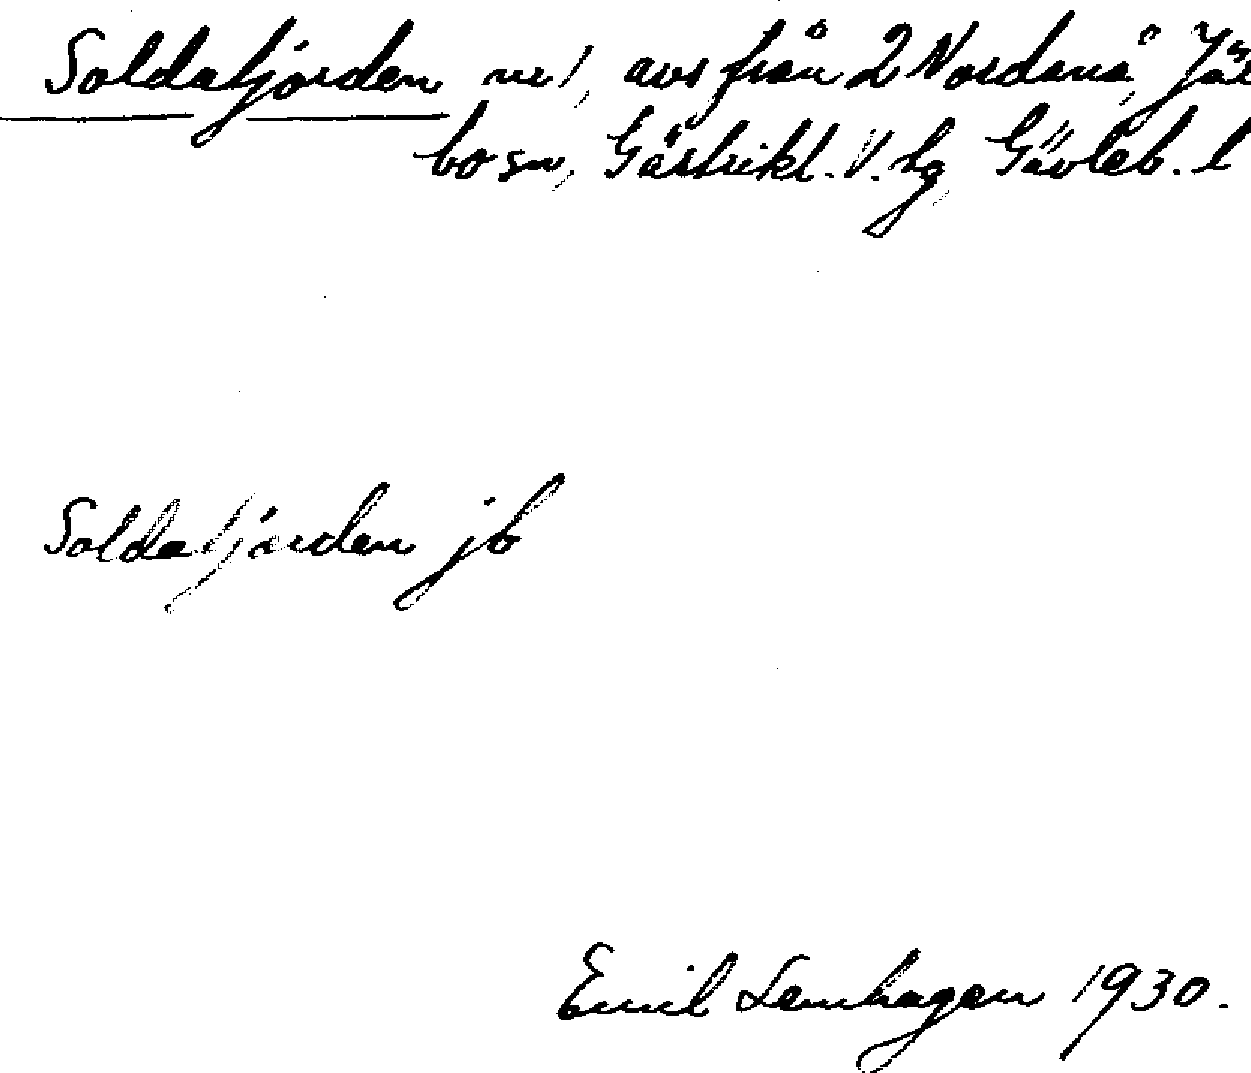 Soldatjorden nr 1, avs från 2 Nordanå, Jär
bo sn, Gästrikl. V. hg, Gävleb. l
Soldatjorden jb
Emil Lemhagen 1930.